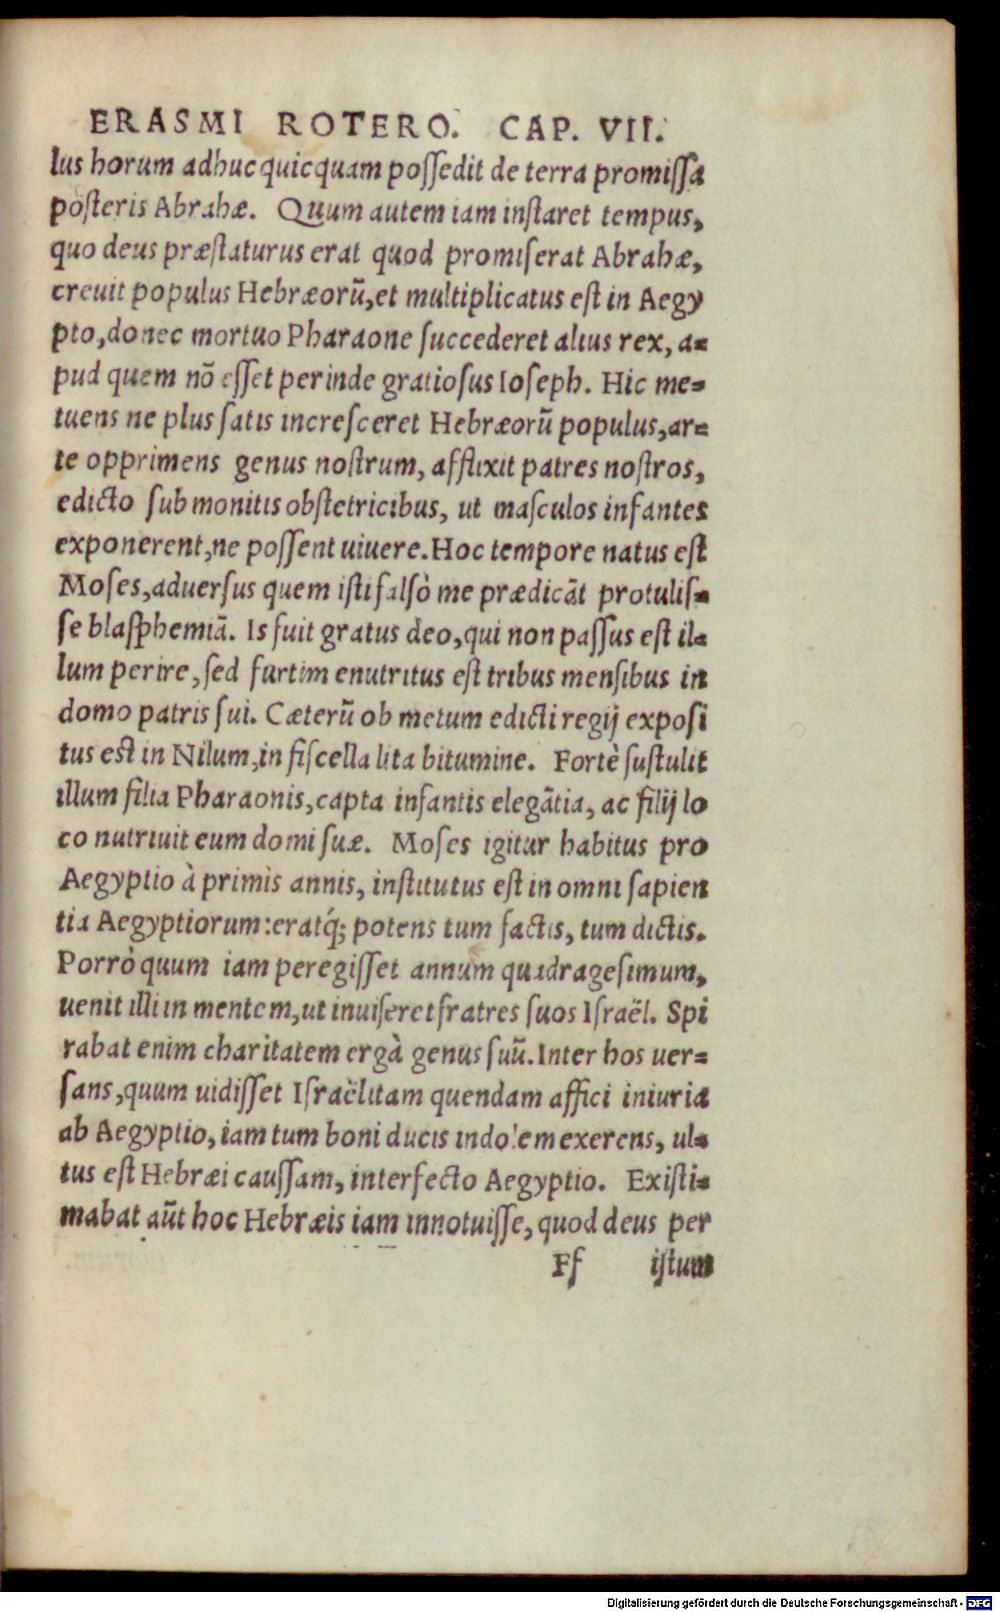 ERASMI ROTERO. CAP. VII.
lus horum adhuc quicquam possedit de terra promissa
posteris Abrahæ. Quum autem iam instaret tempus,
quo deus præstaturus erat quod promiserat Abrahæ,
crevit populus Hebræorū, et multiplicatus est in Aegy
pto, donec mortuo Pharaone succederet alius rex, a-
pud quem nō esset perinde gratiosus Ioseph. Hic me-
tuens ne plus satis incresceret Hebræorū populus, ar-
te opprimens genus nostrum, afflixit patres nostros,
edicto submonitis obstetricibus, ut masculos infantes
exponerent, ne possent uiuere. Hoc tempore natus est
Moses, adversus quem isti falsò me prædicāt protulis-
se blasphemiā. Is fuit gratus deo, qui non passus est il-
lum perire, sed furtim enutritus est tribus mensibus in
domo patris sui. Cæterū ob metum edicti regij exposi
tus est in Nilum, in fiscella lita bitumine. Fortè sustulit
illum filia Pharaonis, capta infantis elegātia, ac filij lo
co nutriuit eum domi suæ. Moses igitur habitus pro
Aegyptio à primis annis, institutus est in omni sapien
tia Aegyptiorum: eratq́; potens tum factis, tum dictis.
Porrò quum iam peregisset annum quadragesimum,
uenit illi in mentem, ut inuiseret fratres suos Israël. Spi
rabat enim charitatem ergà genus suū. Inter hos uer-
sans, quum uidisset Israëlitam quendam affici iniuria
ab Aegyptio, iam tum boni ducis indolem exerens, ul-
tus est Hebræi caussam, interfecto Aegyptio. Existi-
mabat aūt hoc Hebræis iam innotuisse, quod deus per
Ff istum
Digitalisierung gefördert durch die Deutsche Forschungsgemeinschaft - DFG